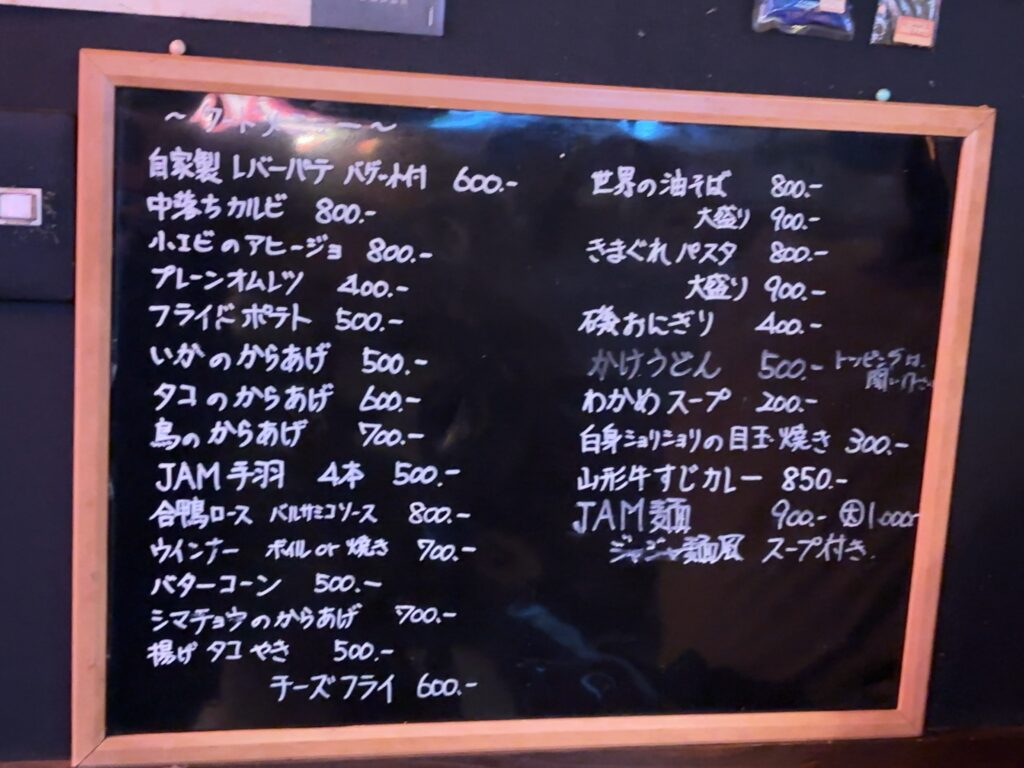 ～フードメニュー～
自家製 レバーパテ バゲット付 600.-
中落ちカルビ 800.-
小エビのアヒージョ 800.-
プレーンオムレツ 400.-
フライドポテト 500.-
いかのからあげ 500.-
タコのからあげ 600.-
鳥のからあげ 700.-
JAM手羽 4本 500.-
合鴨ロース バルサミコソース 800.-
ウインナー ボイルor焼き 700.-
バターコーン 500.-
シマチョウのからあげ 700.-
揚げタコやき 500.-
チーズフライ 600.-
世界の油そば 800.-
大盛り 900.-
きまぐれパスタ 800.-
大盛り 900.-
磯おにぎり 400.-
かけうどん 500.- トッピングは、
聞いて下さい
わかめスープ 200.-
白身ショリショリの目玉焼き 300.-
山形牛すじカレー 850.-
JAM麺 900.- 大1,000.-
ジャジャ麺風 スープ付き.